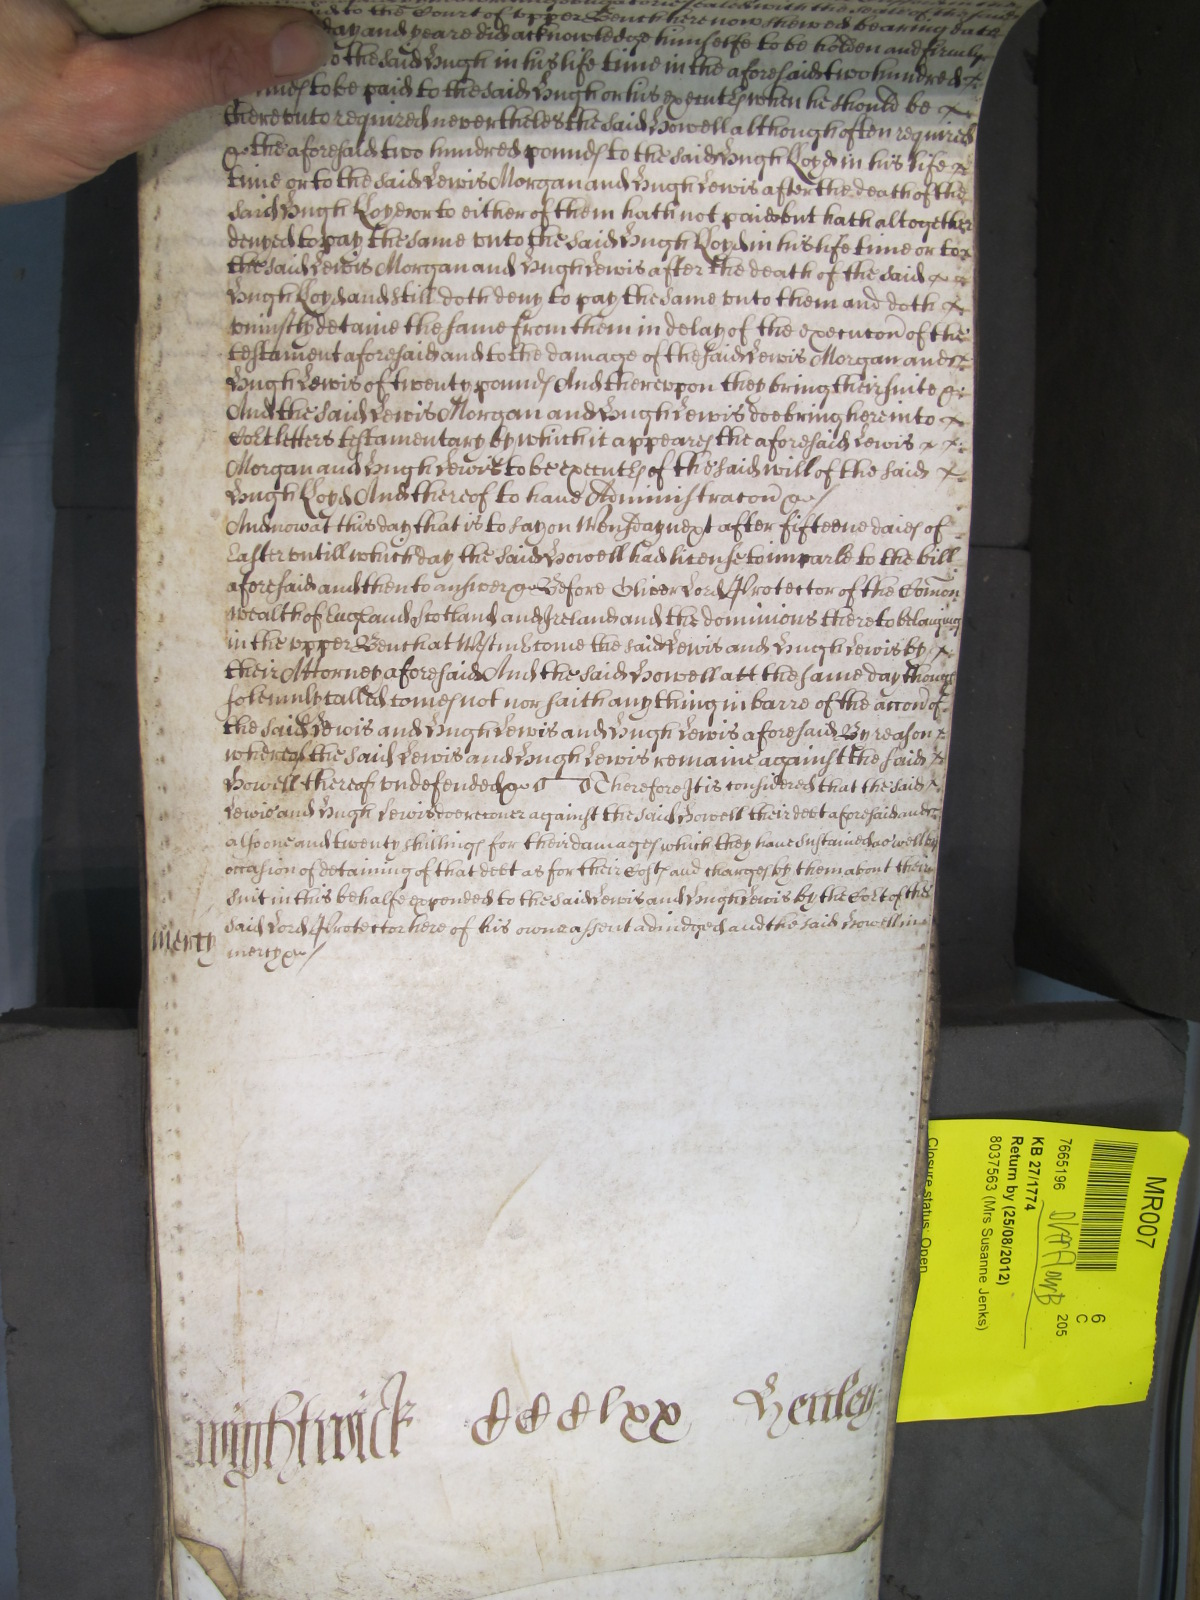 to the Court of upper Bench here now shewed bearing date
day and yeare did acknowledge himselfe to be holden and firmly
to the said Hugh in his life time in the aforesaid two hundred
to be paid to the said Hugh or his executors when he should be
thereunto required neverthelesse the said Howell although often required
the aforesaid two hundred pounds to the said Hugh Lloyd in his life
time or to the said Lewis Morgan and Hugh Lewis after the death of the
said Hugh Lloyd or to either of them hath not paid but hath altogether
denyed to pay the same unto the said Hugh Lloyd in his life time or to
the said Lewis Morgan and Hugh Lewis after the death of the said
Hugh Lloyd and still doth deny to pay the same unto them and doth
uniustly detaine the same from them in delay of the execucon of the
testament aforesaid and to the damage of the said Lewis Morgan and
Hugh Lewis of twenty pounds And thereupon they bring their suite &c
And the said Lewis Morgan and Hugh Lewis doe bring here into
Cort letters testamentary by which it appeares the aforesaid Lewis
Morgan and Hugh Lewis to be executors of the said will of the said
Hugh Lloyd And thereof to have Administracon &c
And now at this day that is to say on Wensday next after fifteene daies of
Easter untill which day the said Howell had license to imparle to the bill
aforesaid and then to answer &c Before Oliver Lord Protector of the Comon
wealth of England Scotland and Ireland and the dominions thereto belonging
in the upper Bench at Westm come the said Lewis and Hugh Lewis by
their Attorney aforesaid And the said Howell att the same day though
solemnly called comes not nor saith any thing in barre of the accon of
the said Lewis and Hugh Lewis and Hugh Lewis aforesaid By reason
whereof the said Lewis and Hugh Lewis remaine against the said
Howell thereof undefended &c Therefore It is considered that the said
Lewis and Hugh Lewis doe recover against the said Howell their debt aforesaid and
also one and twenty shillings for their damages which they have sustained as well by
occasion of detaining of that debt as for their Costs and charges by them about their
suit in this behalfe expended to the said Lewis and Hugh Lewis by the Cort of the
said Lord Protector here of his owne assent adiudged and the said Howell in
mercy mercy &c
Wightwick CCClxx Henley
MR007
6
C
7665196 205
KB 27/1774
Return by (25/08/2012)
8037563 (Mrs Susanne Jenks)
Closure status: Open